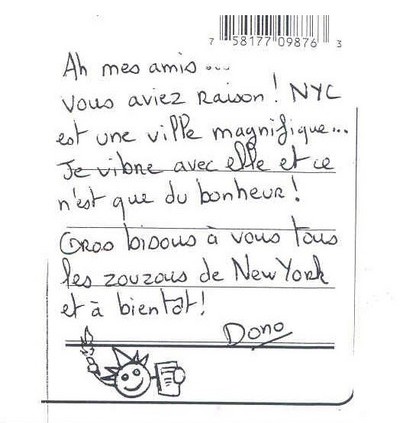 7 58177 09876 3
Ah mes amis ...
Vous aviez raison ! NYC
est une ville magnifique...
Je vibre avec elle et ce
n'est que du bonheur !
Gros bisous à vous tous
les zouzous de New York
et à bientôt !
Dono